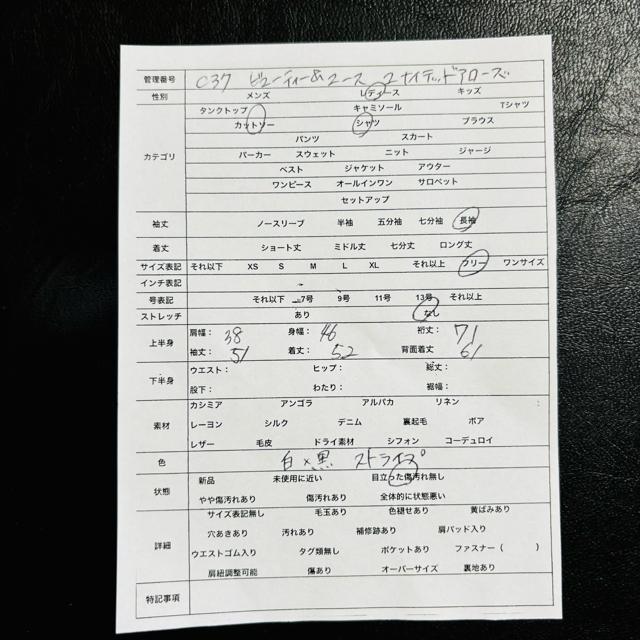 管理番号 C37 ビューティー&ユース ユナイテッドアローズ
性別 メンズ レディース キッズ
タンクトップ キャミソール Tシャツ
カットソー シャツ ブラウス
パンツ スカート
カテゴリ パーカー スウェット ニット ジャージ
ベスト ジャケット アウター
ワンピース オールインワン サロペット
セットアップ
袖丈 ノースリーブ 半袖 五分袖 七分袖 長袖
着丈 ショート丈 ミドル丈 七分丈 ロング丈
サイズ表記 それ以下 XS S M L XL それ以上 フリー ワンサイズ
インチ表記
号表記 それ以下 7号 9号 11号 13号 それ以上
ストレッチ あり なし
上半身 肩幅: 38 身幅: 46 裄丈: 71
袖丈: 51 着丈: 52 背面着丈 61
下半身 ウエスト: ヒップ: 総丈:
股下: わたり: 裾幅:
カシミア アンゴラ アルパカ リネン :
素材 レーヨン シルク デニム 裏起毛 ボア
レザー 毛皮 ドライ素材 シフォン コーデュロイ
色 白×黒 ストライプ
状態 新品 未使用に近い 目立った傷汚れ無し
やや傷汚れあり 傷汚れあり 全体的に状態悪い
サイズ表記無し 毛玉あり 色褪せあり 黄ばみあり
穴あきあり 汚れあり 補修跡あり 肩パッド入り
詳細 ウエストゴム入り タグ類無し ポケットあり ファスナー( )
肩紐調整可能 傷あり オーバーサイズ 裏地あり
特記事項